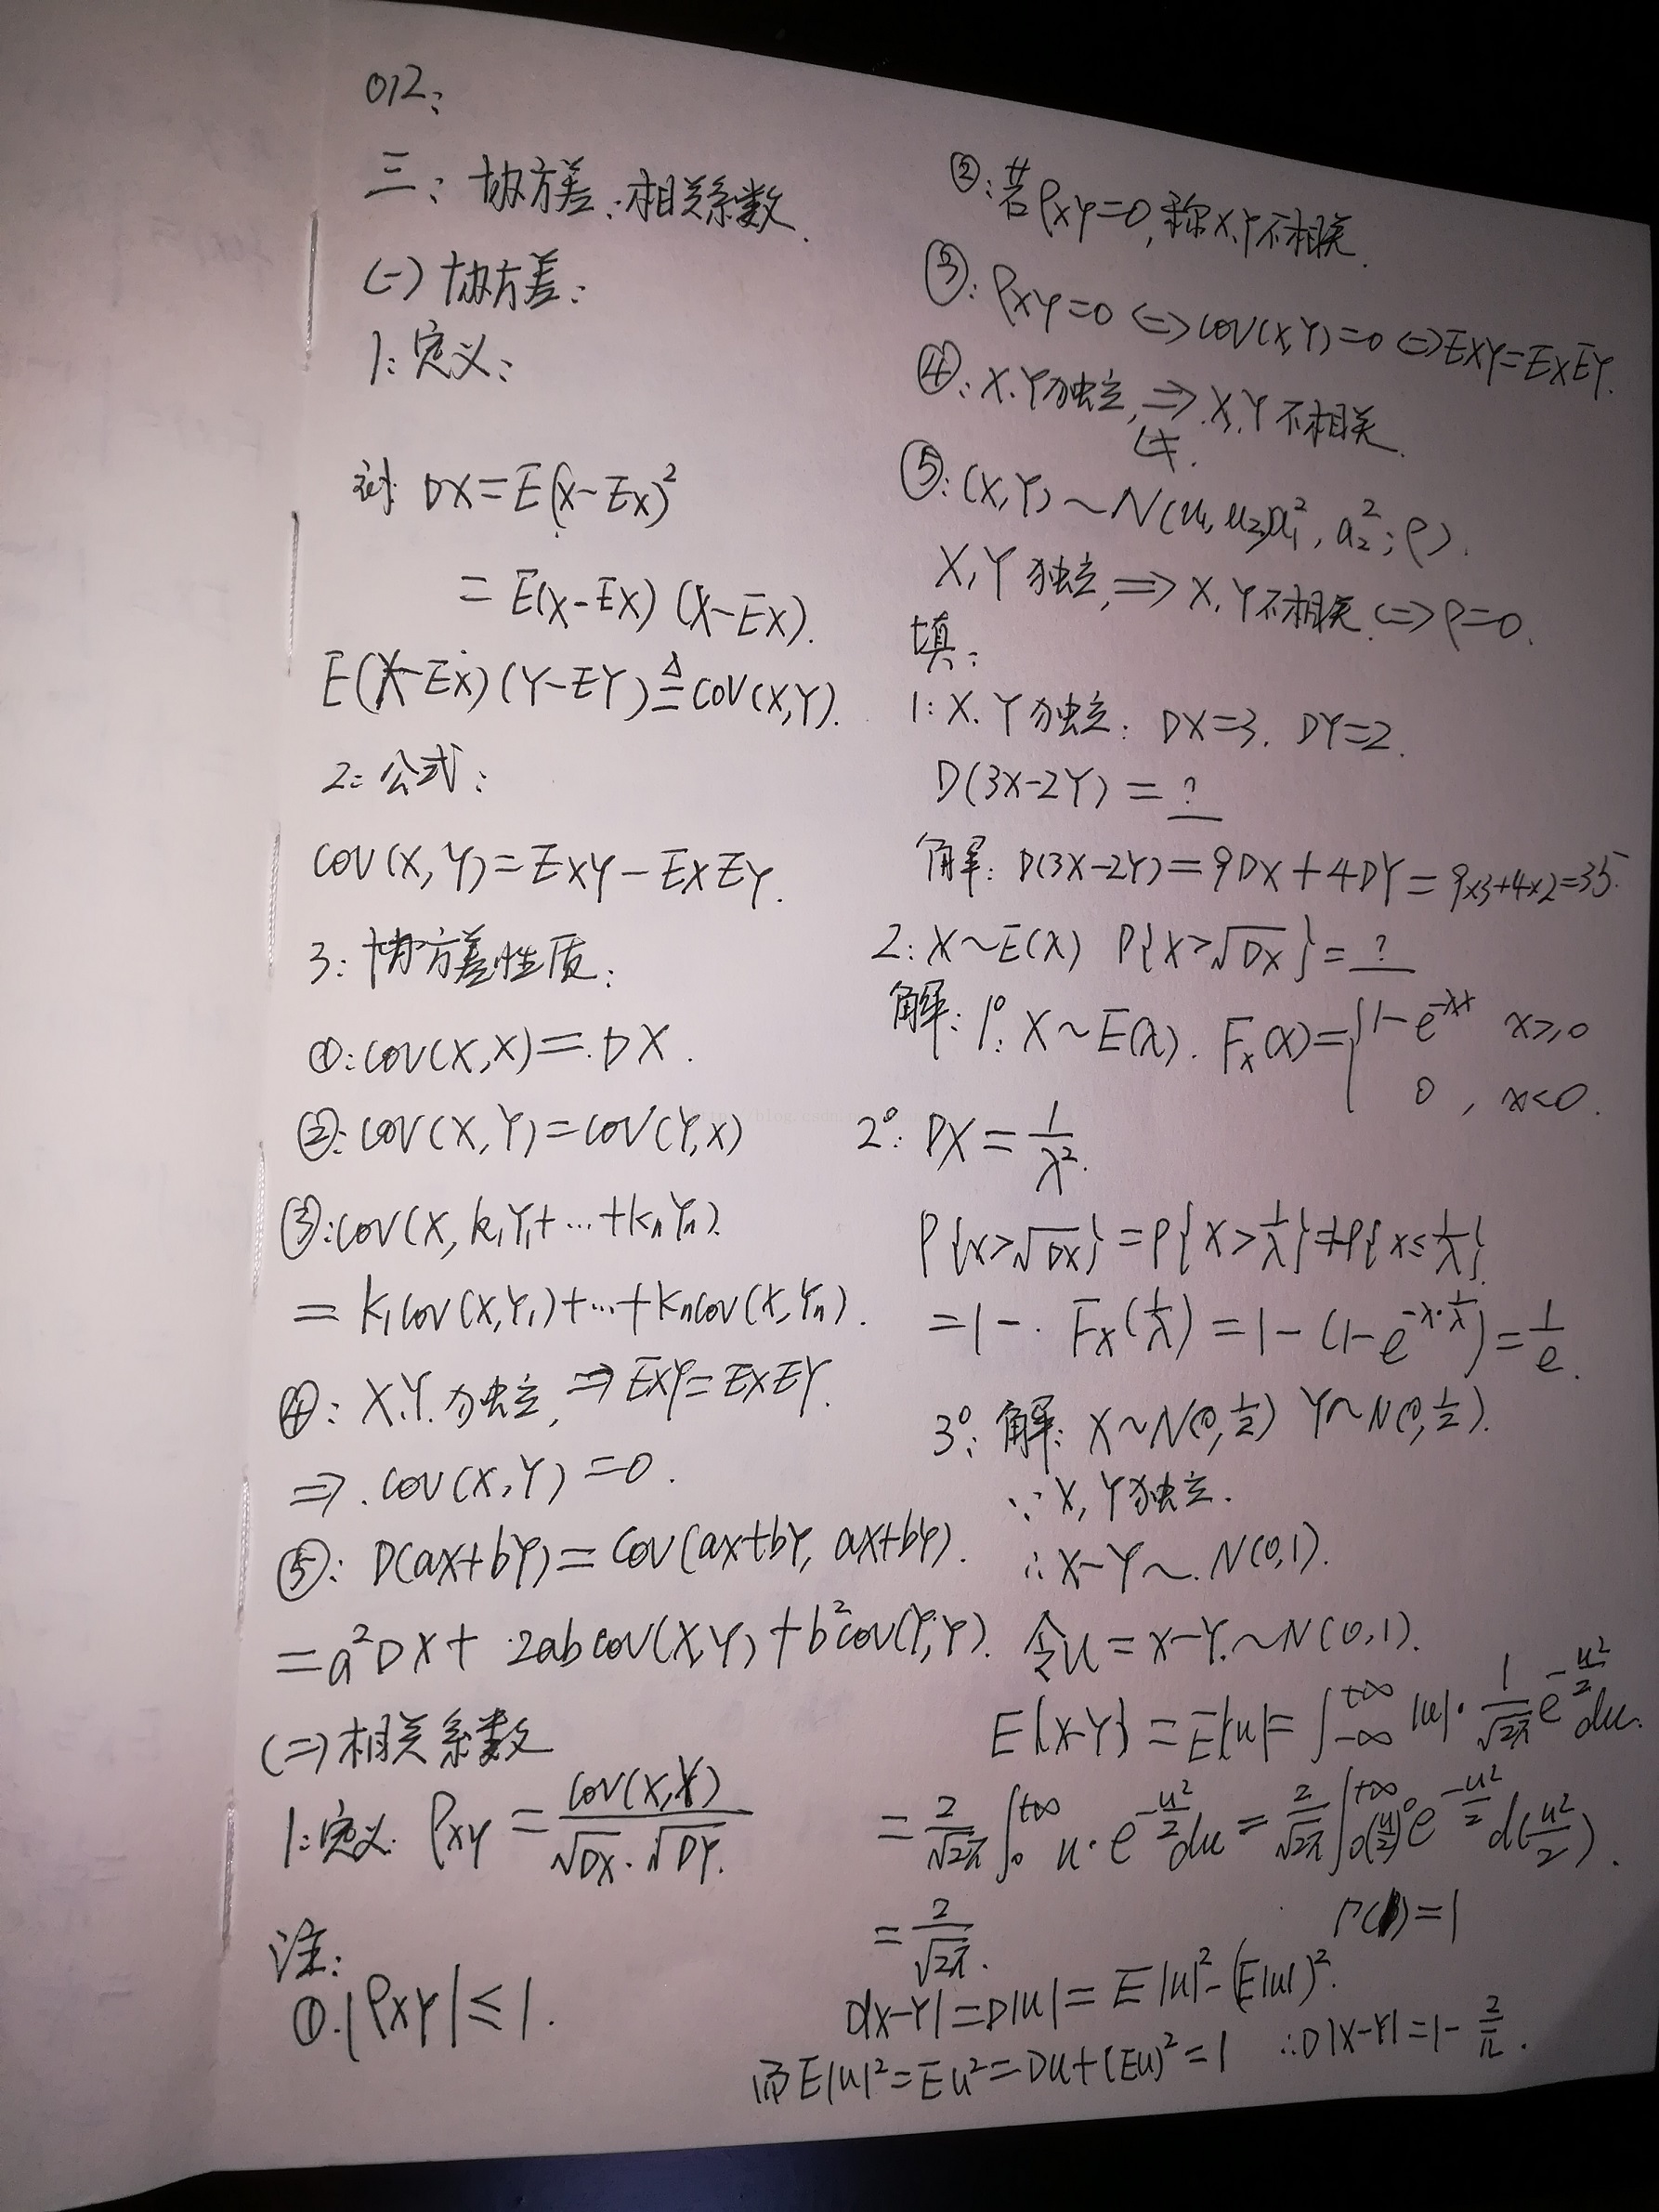 012:
三: 协方差、相关系数.
(一) 协方差:
1: 定义:
对 DX=E(X-EX)²
=E(X-EX)(X-EX).
E(X-EX)(Y-EY)≜COV(X,Y).
2: 公式:
COV(X,Y)=EXY-EXEY.
3: 协方差性质:
①: COV(X,X)=DX.
②: COV(X,Y)=COV(Y,X)
③: COV(X, k₁Y₁+…+kₙYₙ)
=k₁COV(X,Y₁)+…+kₙCOV(X,Yₙ).
④: X.Y.独立, ⇒ EXY=EXEY.
⇒.COV(X,Y)=0.
⑤: D(aX+bY)=COV(aX+bY, aX+bY).
=a²DX+2abCOV(X,Y)+b²COV(Y,Y).
(二) 相关系数
1: 定义. ρXY=COV(X,Y)/(√DX·√DY).
注:
①.|ρXY|≤1.
②: 若ρXY=0, 称X,Y不相关.
③: ρXY=0 ⇔ COV(X,Y)=0 ⇔ EXY=EXEY.
④: X.Y独立, ⇒ X,Y不相关.
⇍.
⑤: (X,Y)~N(u₁,u₂,a₁²,a₂²;ρ).
X,Y独立, ⇒ X,Y不相关. ⇔ ρ=0.
填:
1: X.Y独立: DX=3. DY=2.
D(3X-2Y)=?
解: D(3X-2Y)=9DX+4DY=9×3+4×2=35.
2: X~E(λ) P{X>√DX}=?
解: 1°: X~E(λ). Fx(x)={1-e^(-λx) x≥0
0, x<0.
2°: DX=1/λ².
P{X>√DX}=P{X>1/λ}=1-P{X≤1/λ}
=1-.Fx(1/λ)=1-(1-e^(-λ·1/λ))=1/e.
3°: 解: X~N(0,1/2) Y~N(0,1/2).
∵X,Y独立.
∴X-Y~.N(0,1).
令u=X-Y.~N(0,1).
E|X-Y|=E|u|=∫₋∞^+∞ |u|·1/√2π e^(-u²/2)du.
=2/√2π ∫₀^+∞ u·e^(-u²/2)du=2/√2π ∫₀^+∞ (u²/2)⁰e^(-u²/2)d(u²/2).
=2/√2π. Γ(1)=1
D|X-Y|=D|u|=E|u|²-(E|u|)².
而E|u|²=Eu²=Du+(Eu)²=1 ∴D|X-Y|=1-2/π.